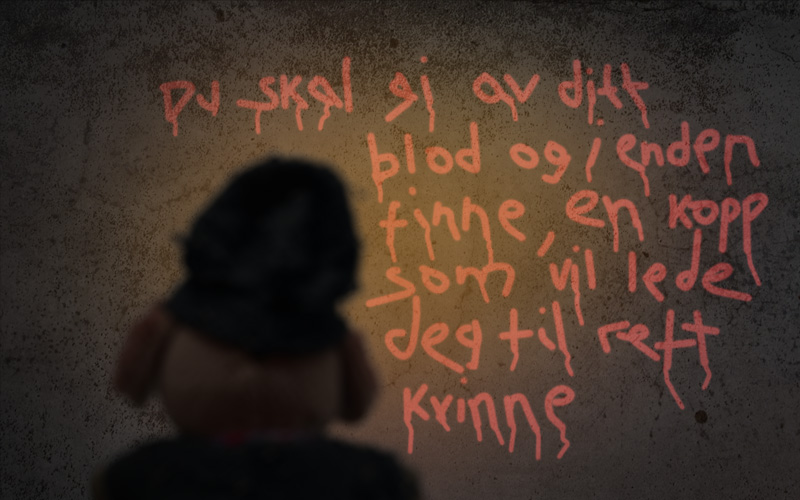 Du skal gi av ditt
blod og i enden
finne, en kopp
som vil lede
deg til rett
kvinne